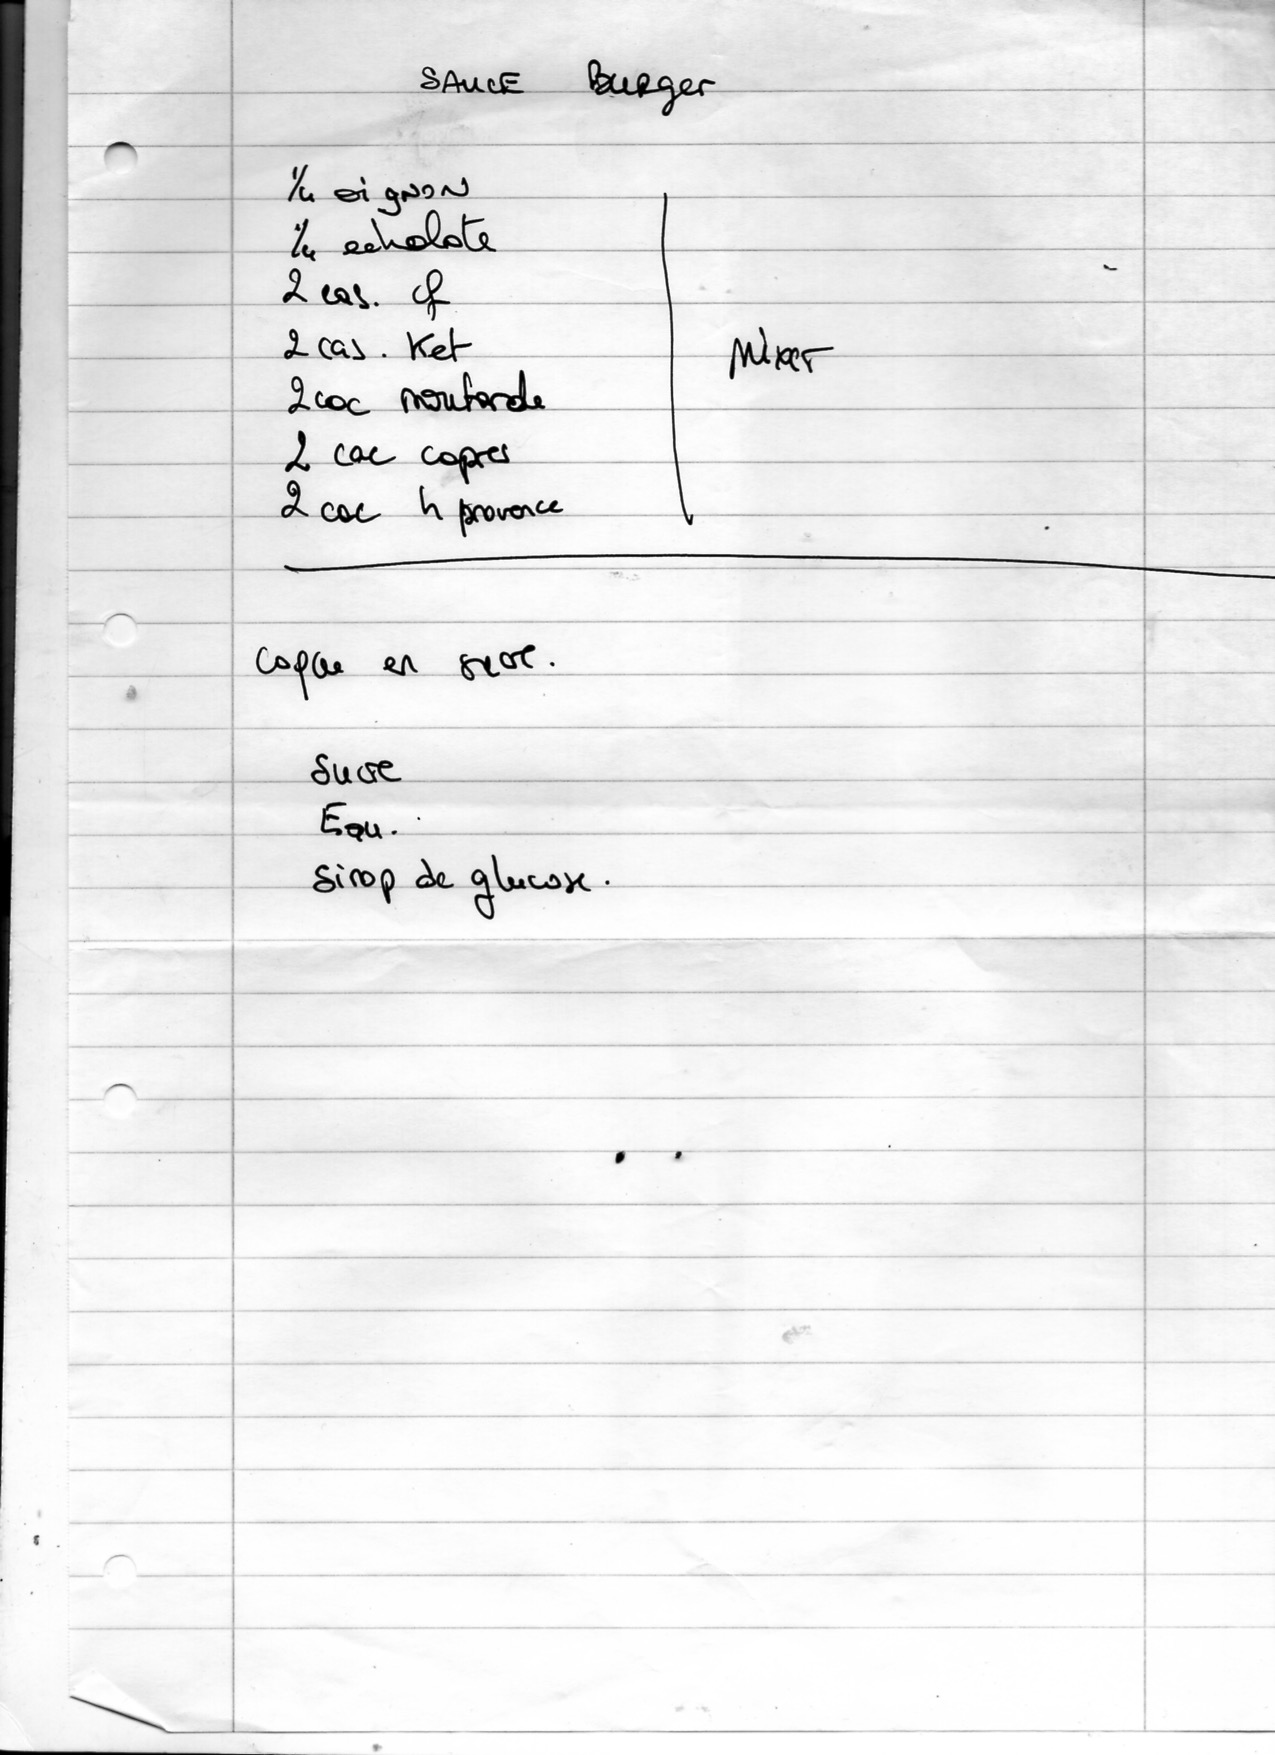 SAUCE Burger
1/4 oignon
1/4 echalote
2 cas. cf
2 cas. Ket
2 cac moutarde
2 cac capres
2 cac h provence
Mixer
Coque en sucre.
Sucre
Eau.
Sirop de glucose.